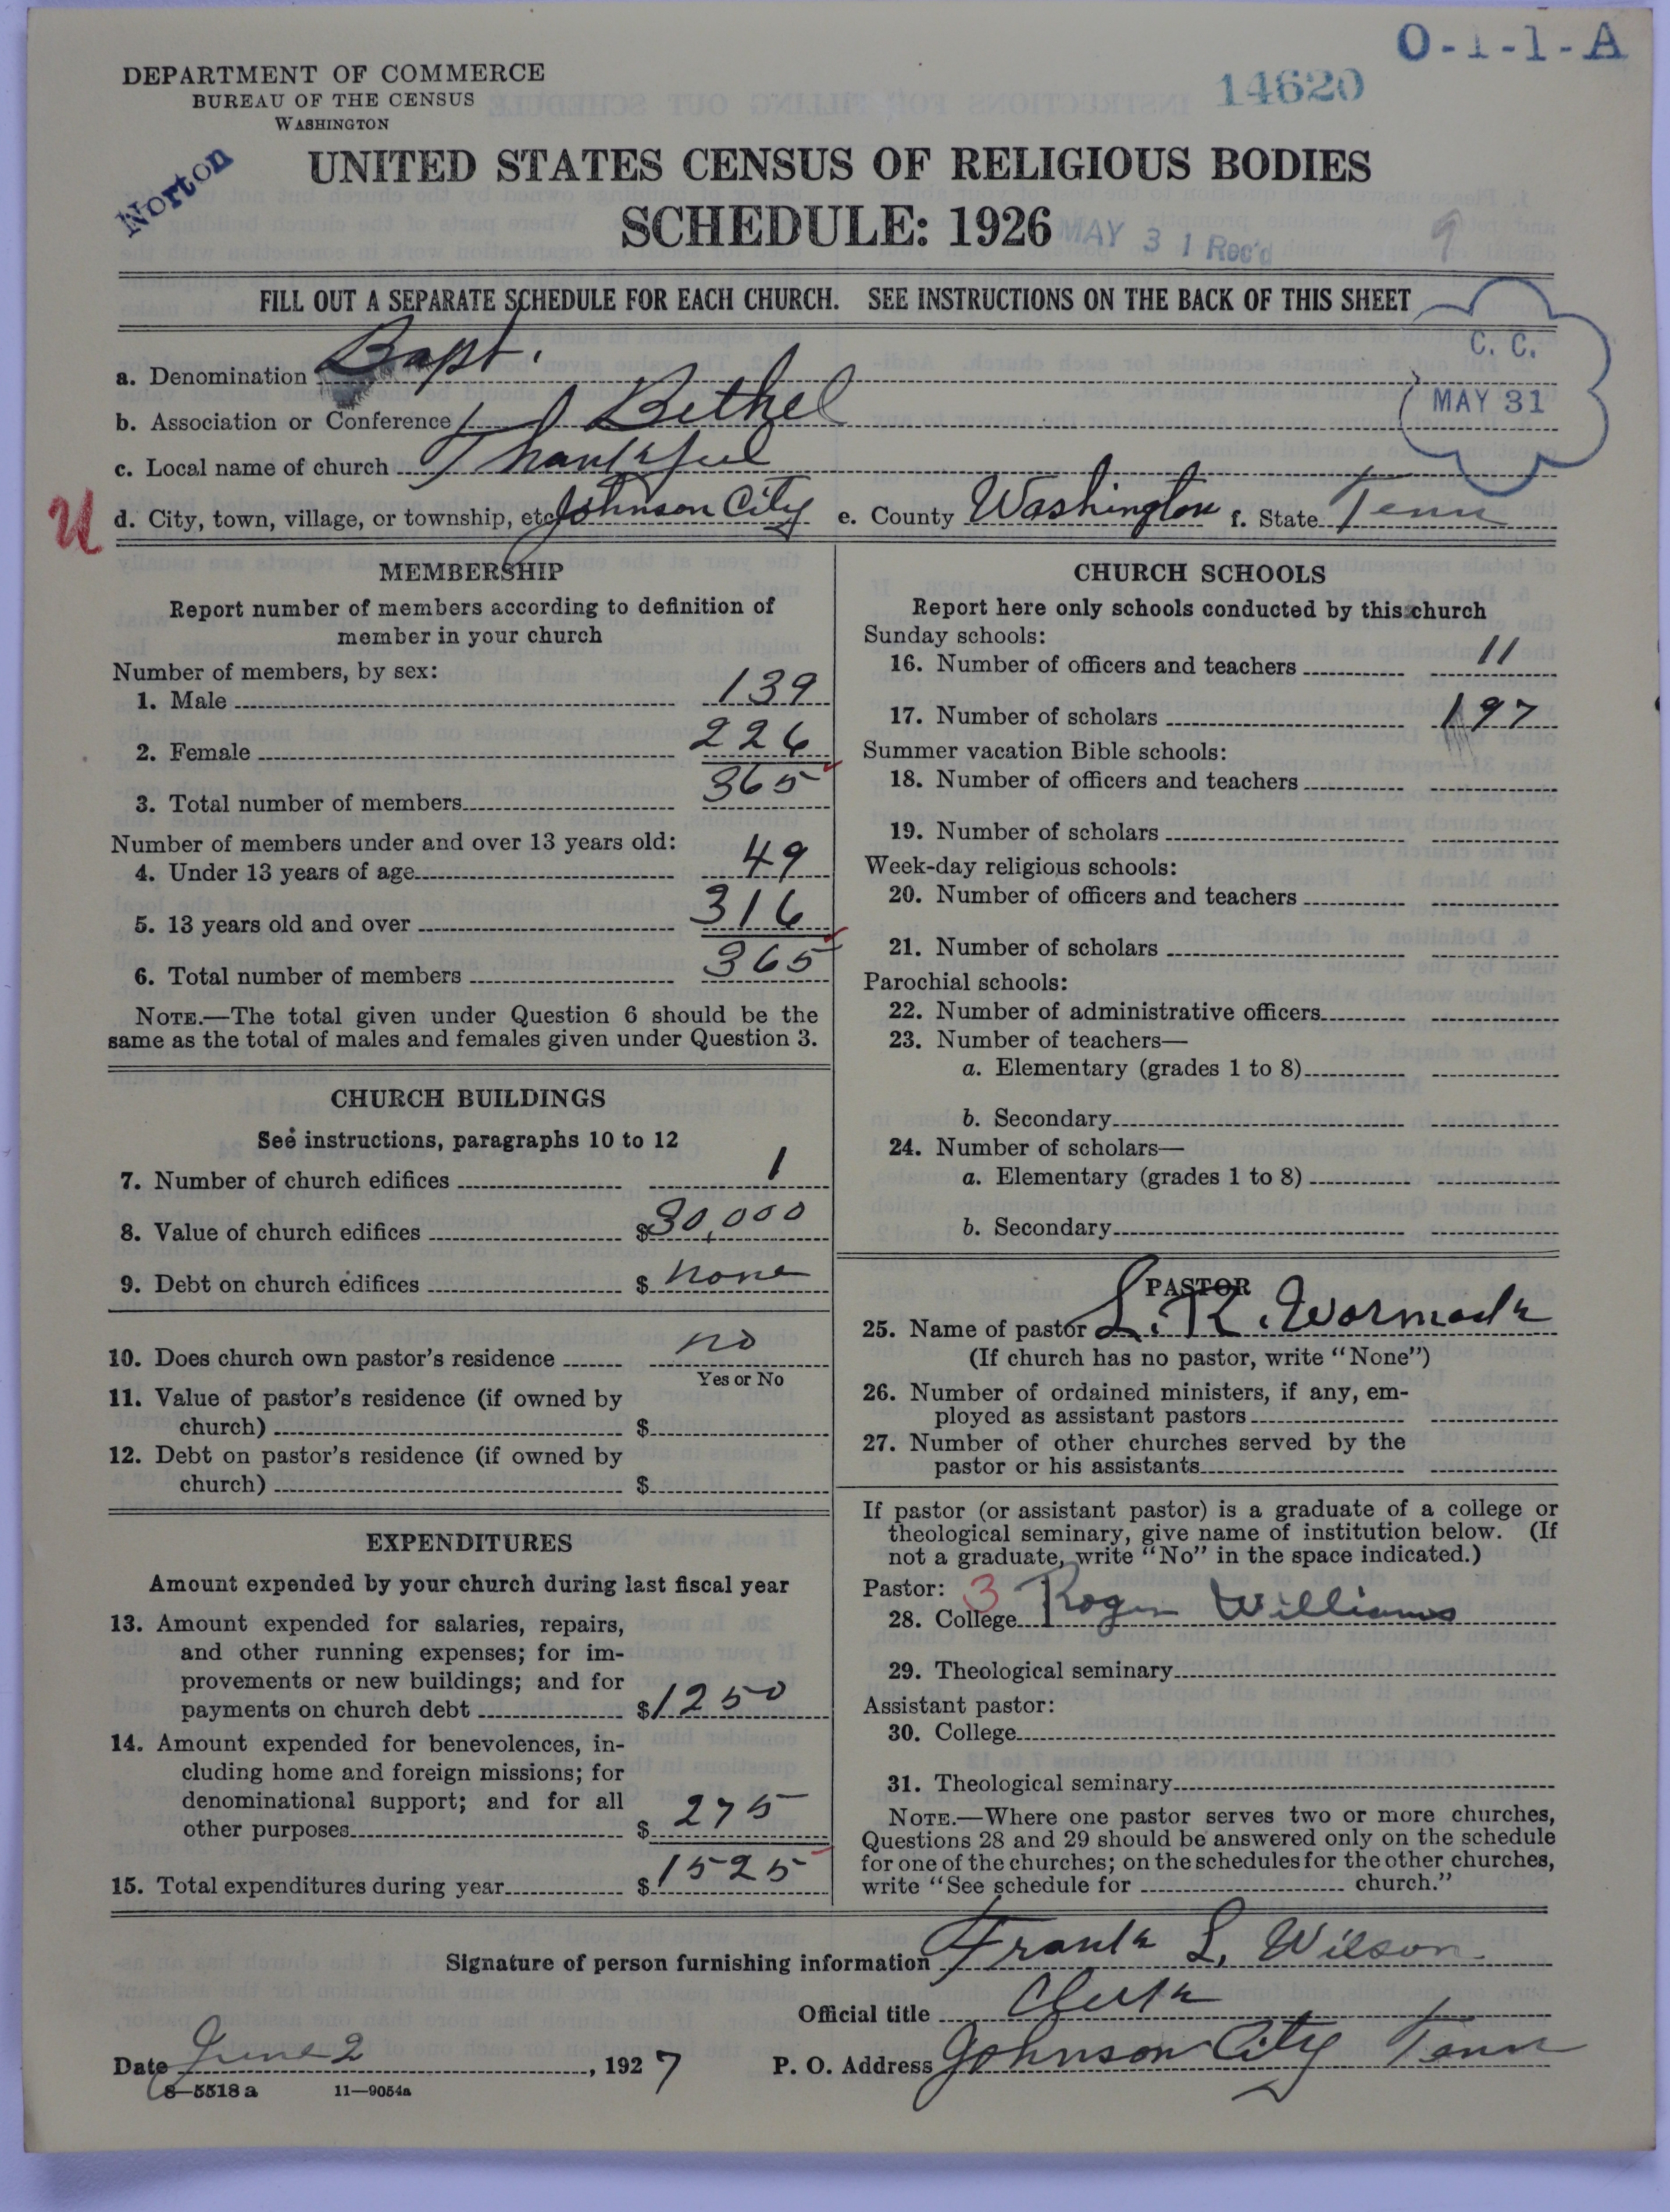 O-1-1-A
DEPARTMENT OF COMMERCE
BUREAU OF THE CENSUS
WASHINGTON
14620
Norton
UNITED STATES CENSUS OF RELIGIOUS BODIES
SCHEDULE: 1926
MAY 31 Rec'd
9
FILL OUT A SEPARATE SCHEDULE FOR EACH CHURCH. SEE INSTRUCTIONS ON THE BACK OF THIS SHEET
C. C.
MAY 31
a. Denomination Bapt.
b. Association or Conference Bethel
c. Local name of church Thankful
U
d. City, town, village, or township, etc. Johnson City e. County Washington f. State Tenn
MEMBERSHIP
Report number of members according to definition of
member in your church
Number of members, by sex:
1. Male 139
2. Female 226
3. Total number of members 365
Number of members under and over 13 years old:
4. Under 13 years of age 49
5. 13 years old and over 316
6. Total number of members 365
NOTE.—The total given under Question 6 should be the
same as the total of males and females given under Question 3.
CHURCH BUILDINGS
See instructions, paragraphs 10 to 12
7. Number of church edifices 1
8. Value of church edifices $30,000
9. Debt on church edifices $ none
10. Does church own pastor's residence no
Yes or No
11. Value of pastor's residence (if owned by
church) $
12. Debt on pastor's residence (if owned by
church) $
EXPENDITURES
Amount expended by your church during last fiscal year
13. Amount expended for salaries, repairs,
and other running expenses; for im-
provements or new buildings; and for
payments on church debt $1250
14. Amount expended for benevolences, in-
cluding home and foreign missions; for
denominational support; and for all
other purposes $ 275
15. Total expenditures during year $1525
CHURCH SCHOOLS
Report here only schools conducted by this church
Sunday schools:
16. Number of officers and teachers 11
17. Number of scholars 197
Summer vacation Bible schools:
18. Number of officers and teachers
19. Number of scholars
Week-day religious schools:
20. Number of officers and teachers
21. Number of scholars
Parochial schools:
22. Number of administrative officers
23. Number of teachers—
a. Elementary (grades 1 to 8)
b. Secondary
24. Number of scholars—
a. Elementary (grades 1 to 8)
b. Secondary
PASTOR
25. Name of pastor L. R. Wormack
(If church has no pastor, write "None")
26. Number of ordained ministers, if any, em-
ployed as assistant pastors
27. Number of other churches served by the
pastor or his assistants
If pastor (or assistant pastor) is a graduate of a college or
theological seminary, give name of institution below. (If
not a graduate, write "No" in the space indicated.)
Pastor: 3
28. College Roger Williams
29. Theological seminary
Assistant pastor:
30. College
31. Theological seminary
NOTE.—Where one pastor serves two or more churches,
Questions 28 and 29 should be answered only on the schedule
for one of the churches; on the schedules for the other churches,
write "See schedule for church."
Signature of person furnishing information Frank L. Wilson
Official title Clerk
Date June 2, 1927 P. O. Address Johnson City Tenn
8—5518 a 11—9054a